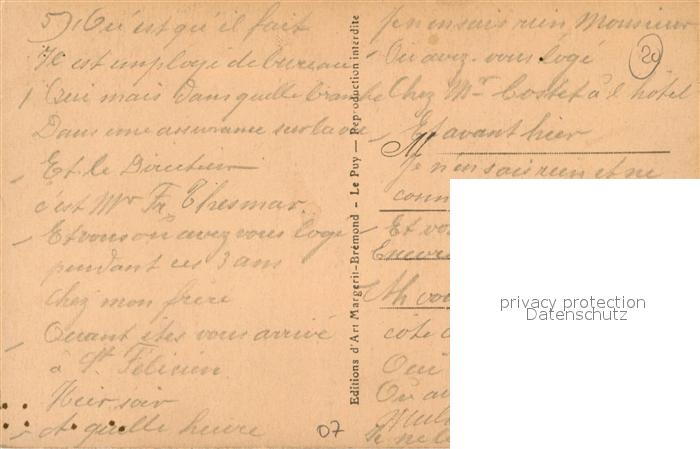 5) Qu'est qu'il fait
Il est employé de bureau
Oui mais dans quelle branche
Dans une assurance sur la vie
– Et le Directeur
c'est Mr Fr. Thesmar
– Et vous où avez vous logé
pendant ces 3 ans
Chez mon frère
– Quant êtes vous arrivé
à St Félicien
Hier soir
– A quelle heure
07
Editions d'Art Margerit-Brémond - Le Puy — Reproduction interdite
Je n'en sais rien Monsieur
– Où avez-vous logé
20
Chez Mr Costet à l'hôtel
– Et avant hier
M
Je n'en sais rien et ne
conn
– Et vo
Encore
Ah vou
côté d
Oui
Où a
Je ne l
privacy protection
Datenschutz